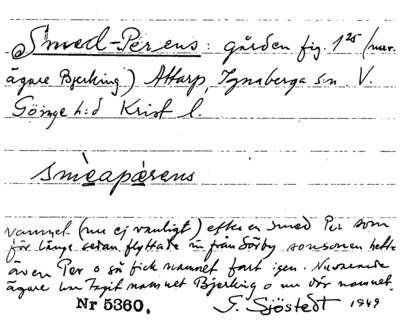 Smed-Pérens: gården fig. 1²⁵ (nuv.
ägare Bjerking) Attarp, Ignaberga sn. V.
Göinge h:d Krist l.
smèapǽrens
namnet (nu ej vanligt) efter en smed Per som
för länge sedan flyttade in från Sörby sonsonen hette
även Per o så fick namnet fart igen. Nuvarande
ägare har tagit namnet Bjerking o nu dör namnet.
Nr 5360. G. Sjöstedt 1949